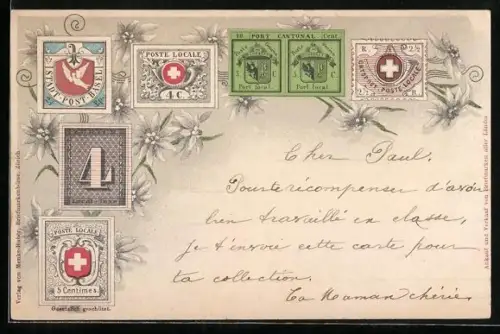 STADT-POST-BASEL
POSTE LOCALE
4 C
10 PORT CANTONAL Cent
5 C 5 C
Port local Port local
R. 2½
ORTS-POST • POSTE LOCALE
2½ R.
4
POSTE LOCALE
5 Centimes
Gesetzlich geschützt.
Verlag von Menke-Huber, Briefmarkenbörse, Zürich
Ankauf und Verkauf von Briefmarken aller Länder
Cher Paul.
Pour te récompenser d'avoir
bien travaillé en classe,
je t'envoie cette carte pour
ta collection.
Ta Maman chérie.